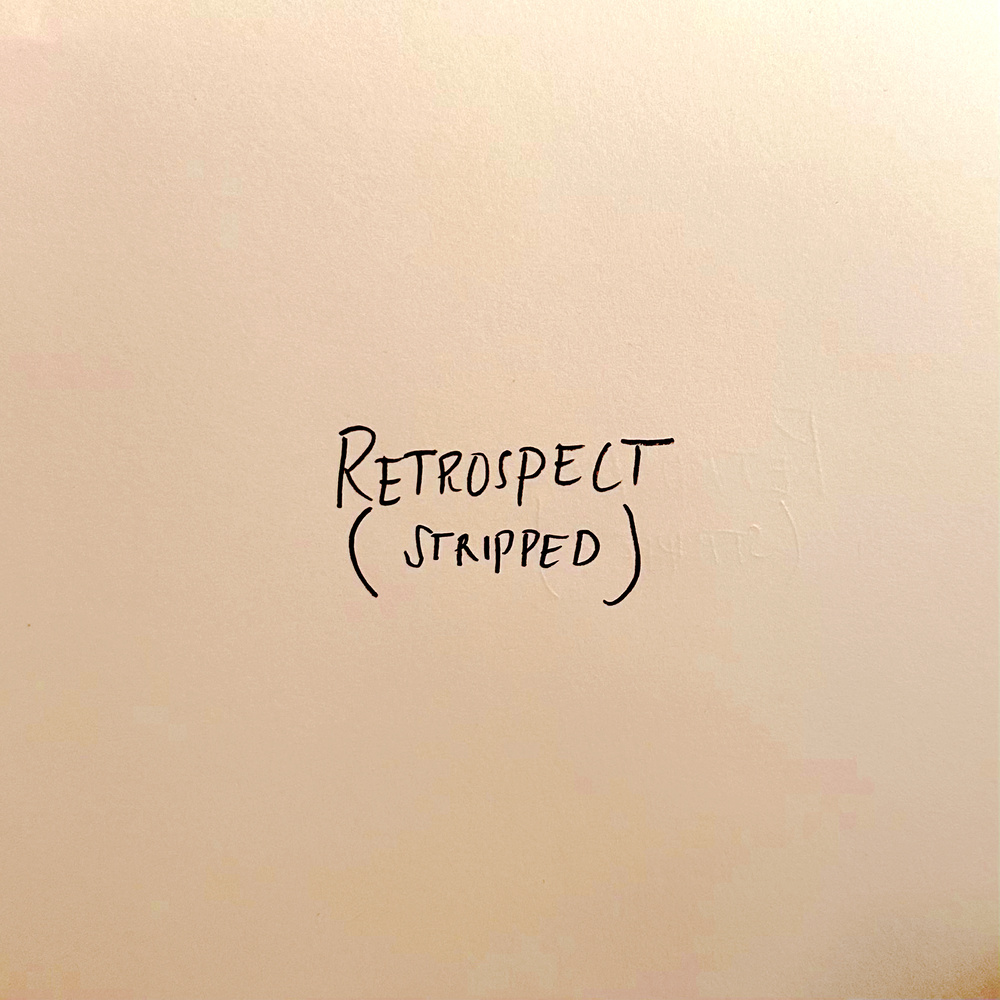 RETROSPECT
(STRIPPED)